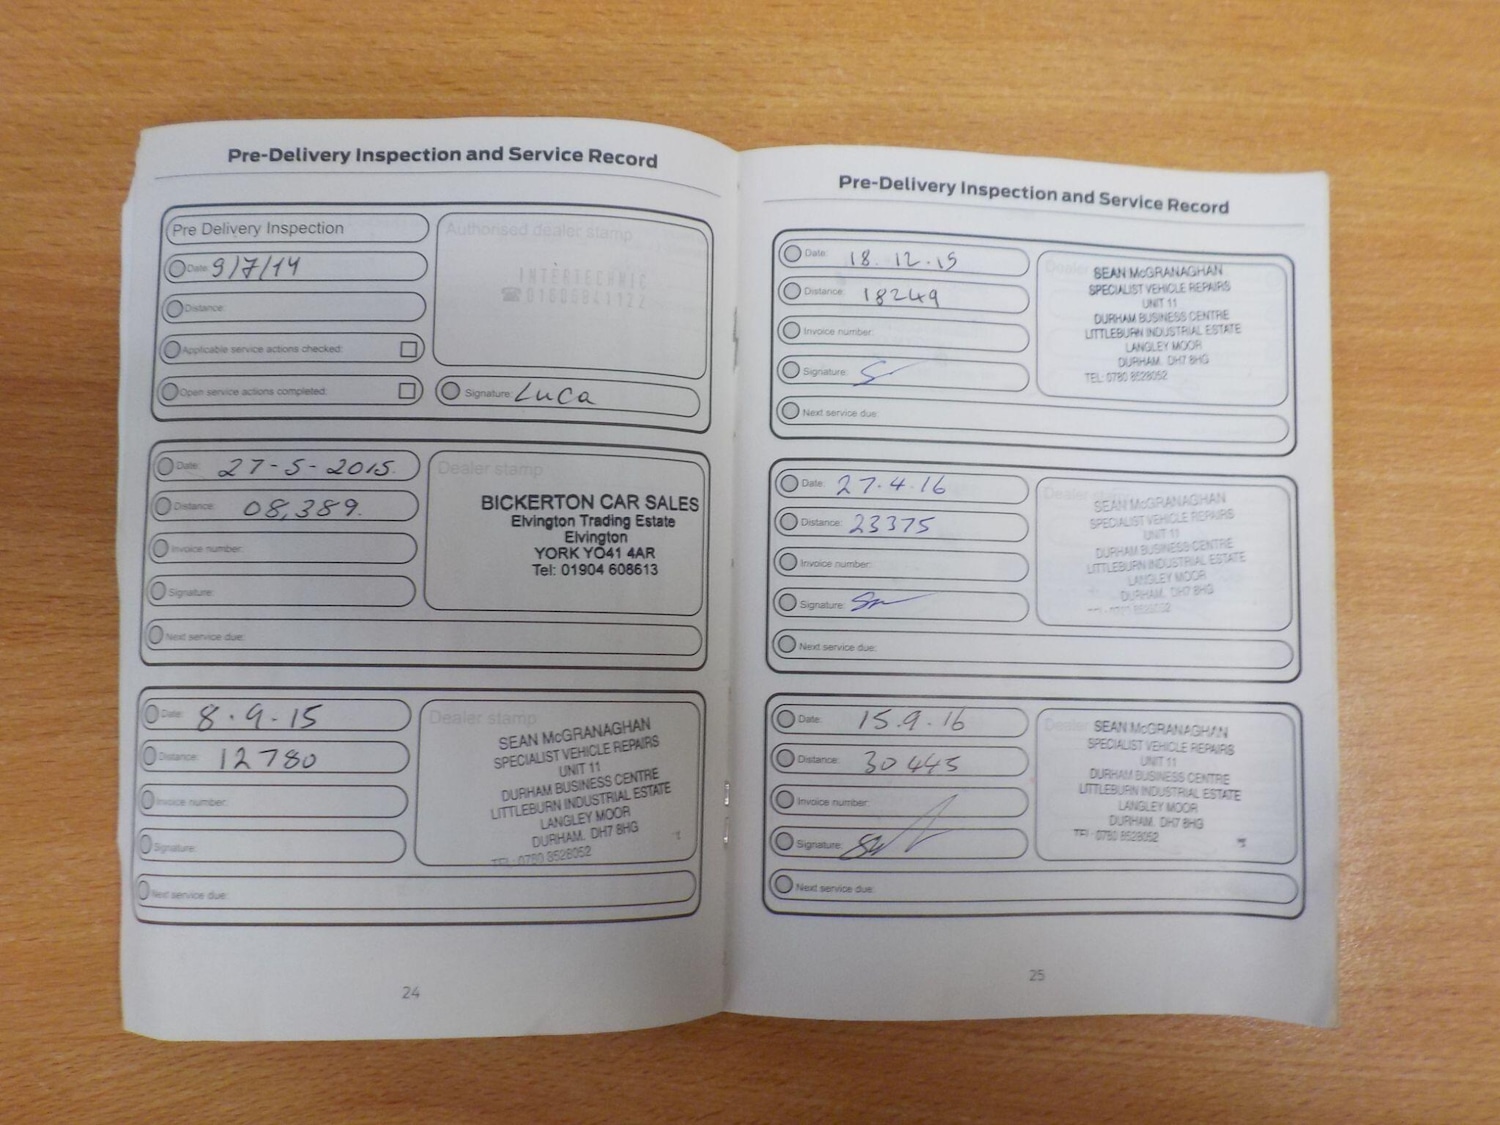 Pre-Delivery Inspection and Service Record
Pre Delivery Inspection
Date: 9/7/14
Distance:
Applicable service actions checked:
Open service actions completed:
Authorised dealer stamp
INTERTECHNIC
Signature: Luca
Date: 27-5-2015.
Distance: 08,389.
Invoice number:
Signature:
Next service due:
Dealer stamp
BICKERTON CAR SALES
Elvington Trading Estate
Elvington
YORK YO41 4AR
Tel: 01904 608613
Date: 8.9.15
Distance: 12780
Invoice number:
Signature:
Next service due:
Dealer stamp
SEAN McGRANAGHAN
SPECIALIST VEHICLE REPAIRS
UNIT 11
DURHAM BUSINESS CENTRE
LITTLEBURN INDUSTRIAL ESTATE
LANGLEY MOOR
DURHAM. DH7 8HG
TEL: 0780 8528052
24
Pre-Delivery Inspection and Service Record
Date: 18.12.15
Distance: 18249
Invoice number:
Signature:
Next service due:
Dealer
SEAN McGRANAGHAN
SPECIALIST VEHICLE REPAIRS
UNIT 11
DURHAM BUSINESS CENTRE
LITTLEBURN INDUSTRIAL ESTATE
LANGLEY MOOR
DURHAM. DH7 8HG
TEL: 0780 8528052
Date: 27.4.16
Distance: 23375
Invoice number:
Signature:
Next service due:
Dealer stamp
SEAN McGRANAGHAN
SPECIALIST VEHICLE REPAIRS
UNIT 11
DURHAM BUSINESS CENTRE
LITTLEBURN INDUSTRIAL ESTATE
LANGLEY MOOR
DURHAM. DH7 8HG
TEL: 0780 8528052
Date: 15.9.16
Distance: 30445
Invoice number:
Signature:
Next service due:
Dealer
SEAN McGRANAGHAN
SPECIALIST VEHICLE REPAIRS
UNIT 11
DURHAM BUSINESS CENTRE
LITTLEBURN INDUSTRIAL ESTATE
LANGLEY MOOR
DURHAM. DH7 8HG
TEL: 0780 8528052
25